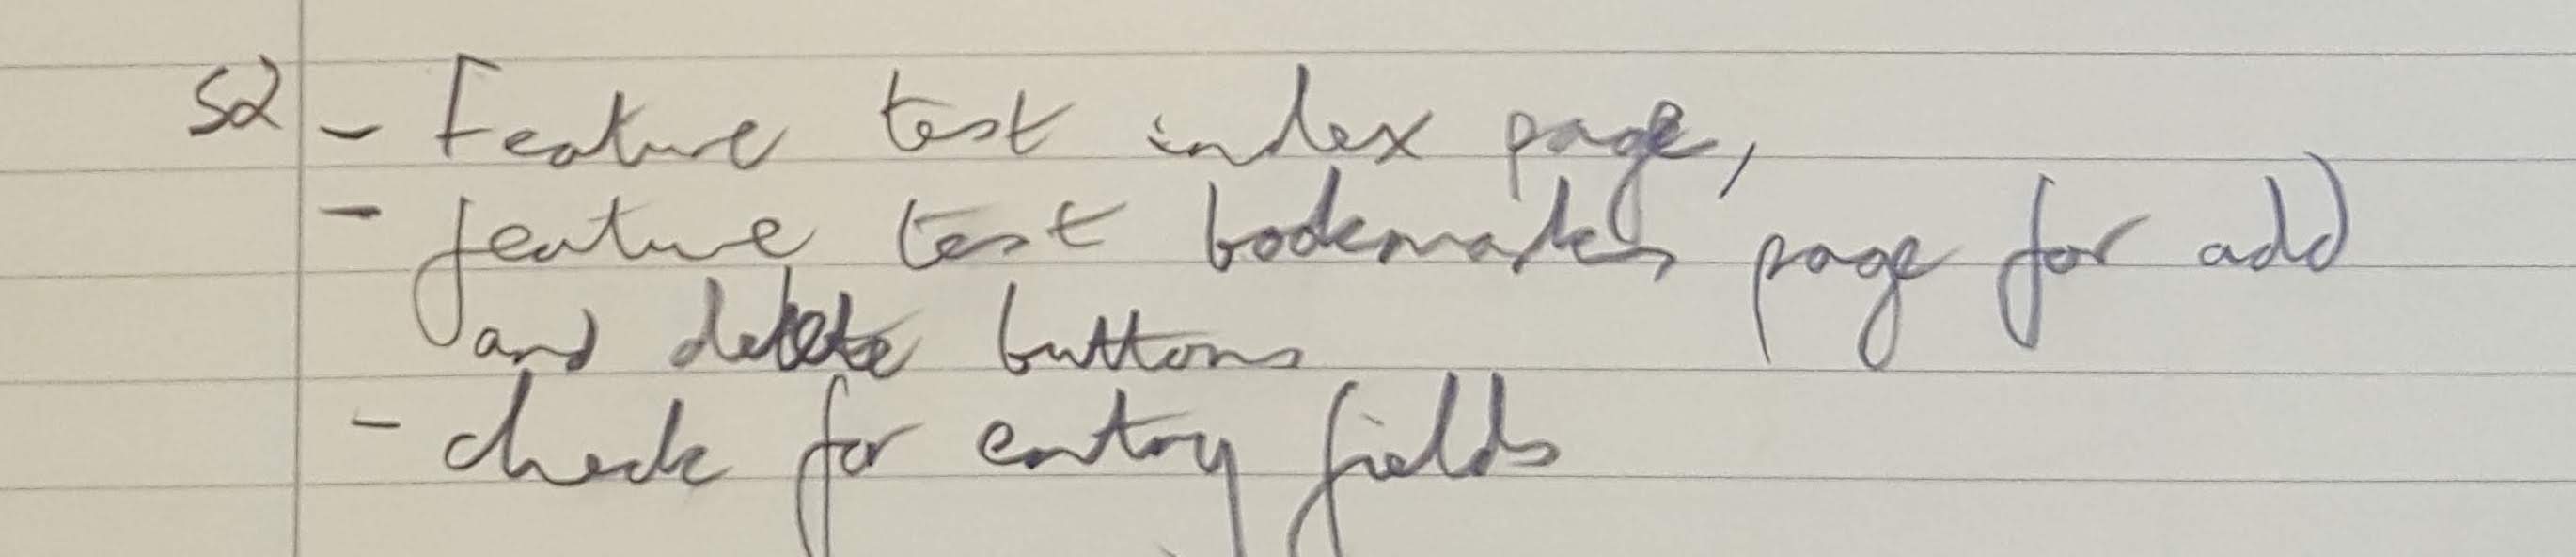 S2 - Feature test index page,
- feature test bookmarks page for add
and delete buttons
- check for entry fields